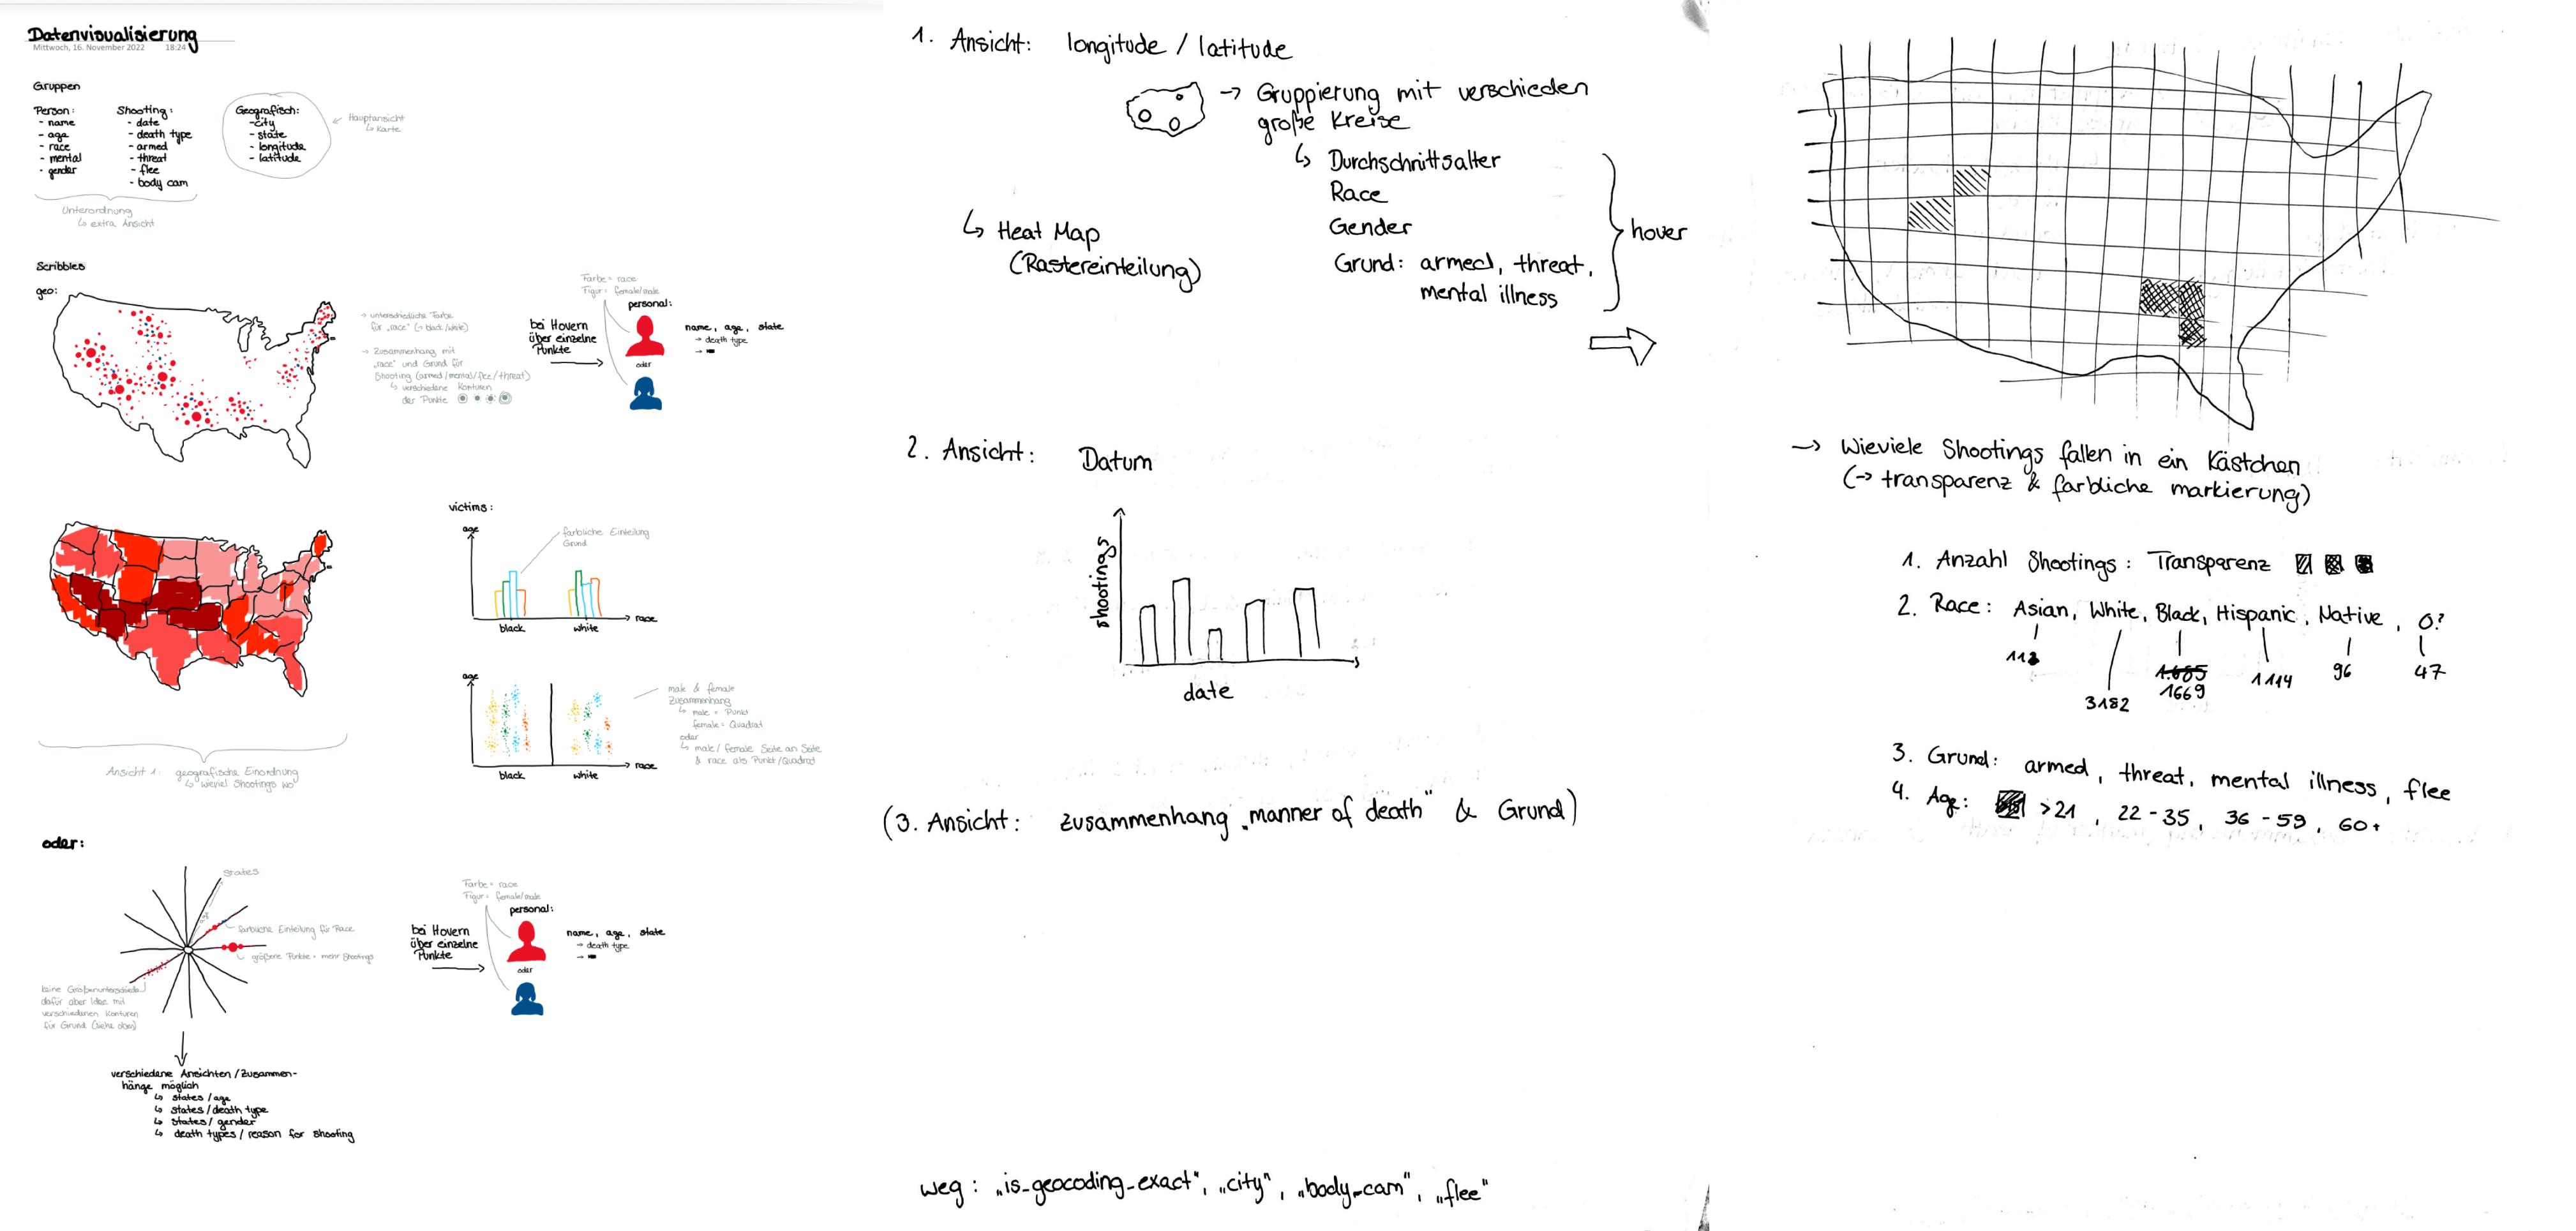 Datenvisualisierung
Mittwoch, 16. November 2022 18:24
Gruppen
Person:
- name
- age
- race
- mental
- gender
Shooting:
- date
- death type
- armed
- threat
- flee
- body cam
Geografisch:
- city
- state
- longitude
- latitude
Hauptansicht
↳ Karte
Unterordnung
↳ extra Ansicht
Scribbles
geo:
→ unterschiedliche Farbe
für „race" (→ black/white)
→ Zusammenhang mit
„race" und Grund für
Shooting (armed/mental/flee/threat)
↳ verschiedene Konturen
der Punkte
bei Hovern
über einzelne
Punkte
Farbe = race
Figur = female/male
personal:
oder
name, age, state
→ death type
→
victims:
age
farbliche Einteilung
Grund
black
white
race
age
male & female
Zusammenhang
↳ male = Punkt
female = Quadrat
oder
↳ male/female Seite an Seite
& race als Punkt/Quadrat
black
white
race
Ansicht 1: geografische Einordnung
↳ wieviel Shootings wo
oder:
States
farbliche Einteilung für Race
größere Punkte = mehr Shootings
keine Größenunterschiede
dafür aber Idee mit
verschiedenen Konturen
für Grund (siehe oben)
bei Hovern
über einzelne
Punkte
Farbe = race
Figur = female/male
personal:
oder
name, age, state
→ death type
→
verschiedene Ansichten/Zusammen-
hänge möglich
↳ states/age
↳ states/death type
↳ states/gender
↳ death types/reason for shooting
1. Ansicht: longitude / latitude
→ Gruppierung mit verschieden
große Kreise
↳ Durchschnittsalter
Race
Gender
Grund: armed, threat,
mental illness
hover
↳ Heat Map
(Rastereinteilung)
2. Ansicht: Datum
shootings
date
(3. Ansicht: Zusammenhang „manner of death" & Grund)
weg: „is_geocoding_exact", „city", „body_cam", „flee"
→ Wieviele Shootings fallen in ein Kästchen
(→ transparenz & farbliche markierung)
1. Anzahl Shootings: Transparenz
2. Race: Asian, White, Black, Hispanic, Native, O?
3182
1.665
1669
1114
96
47
3. Grund: armed, threat, mental illness, flee
4. Age: >21, 22-35, 36-59, 60+